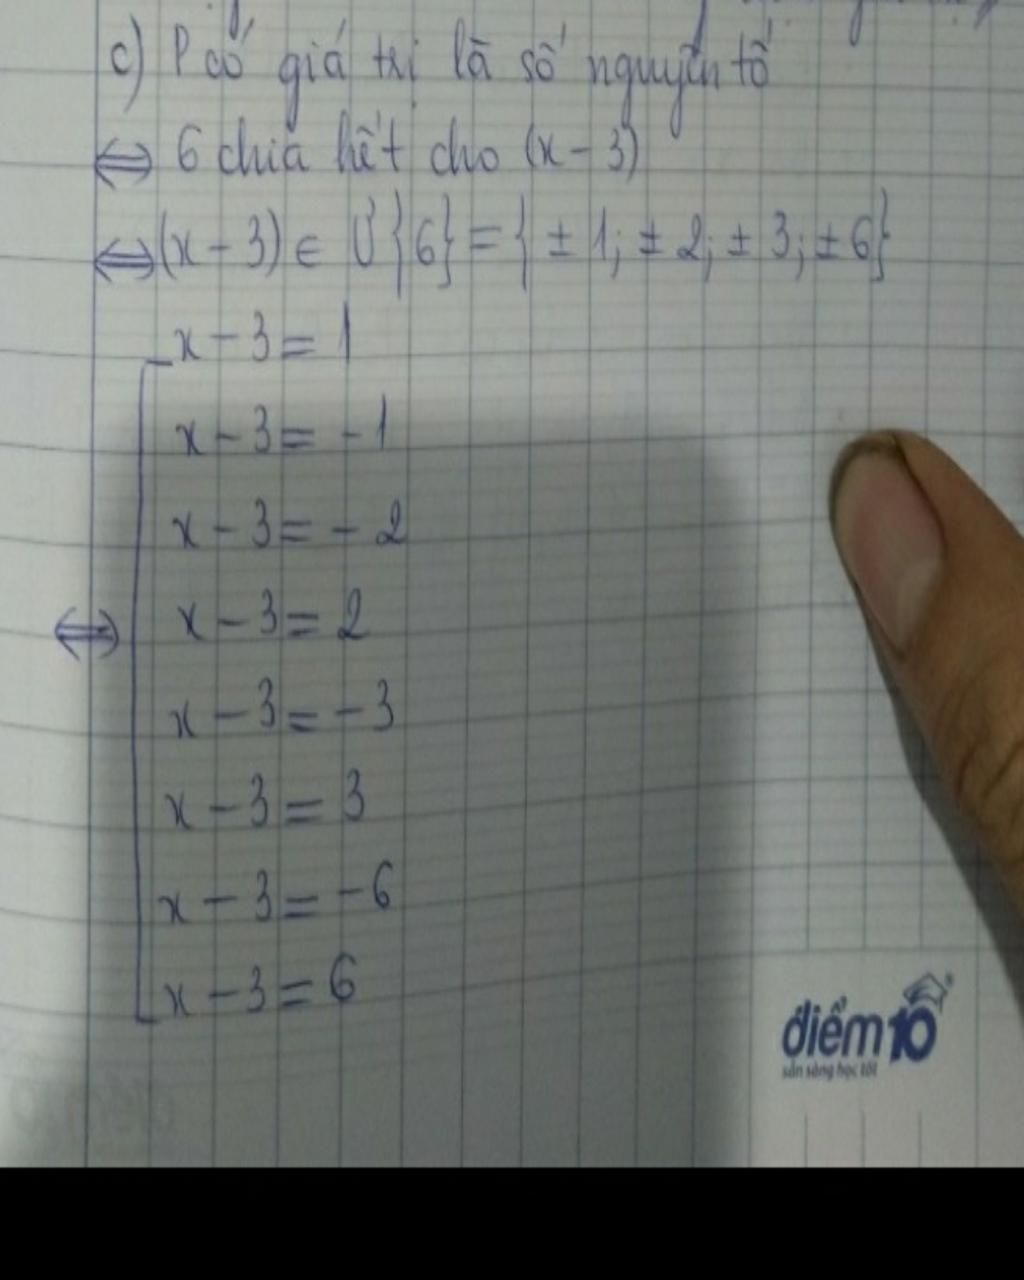 c) P có giá trị là số nguyên tố
⇔ 6 chia hết cho (x - 3)
⇔ (x - 3) ∈ Ư{6} = { ± 1; ± 2; ± 3; ± 6}
x - 3 = 1
x - 3 = - 1
x - 3 = - 2
⇔ x - 3 = 2
x - 3 = - 3
x - 3 = 3
x - 3 = - 6
x - 3 = 6
điểm10
sẵn sàng học tốt